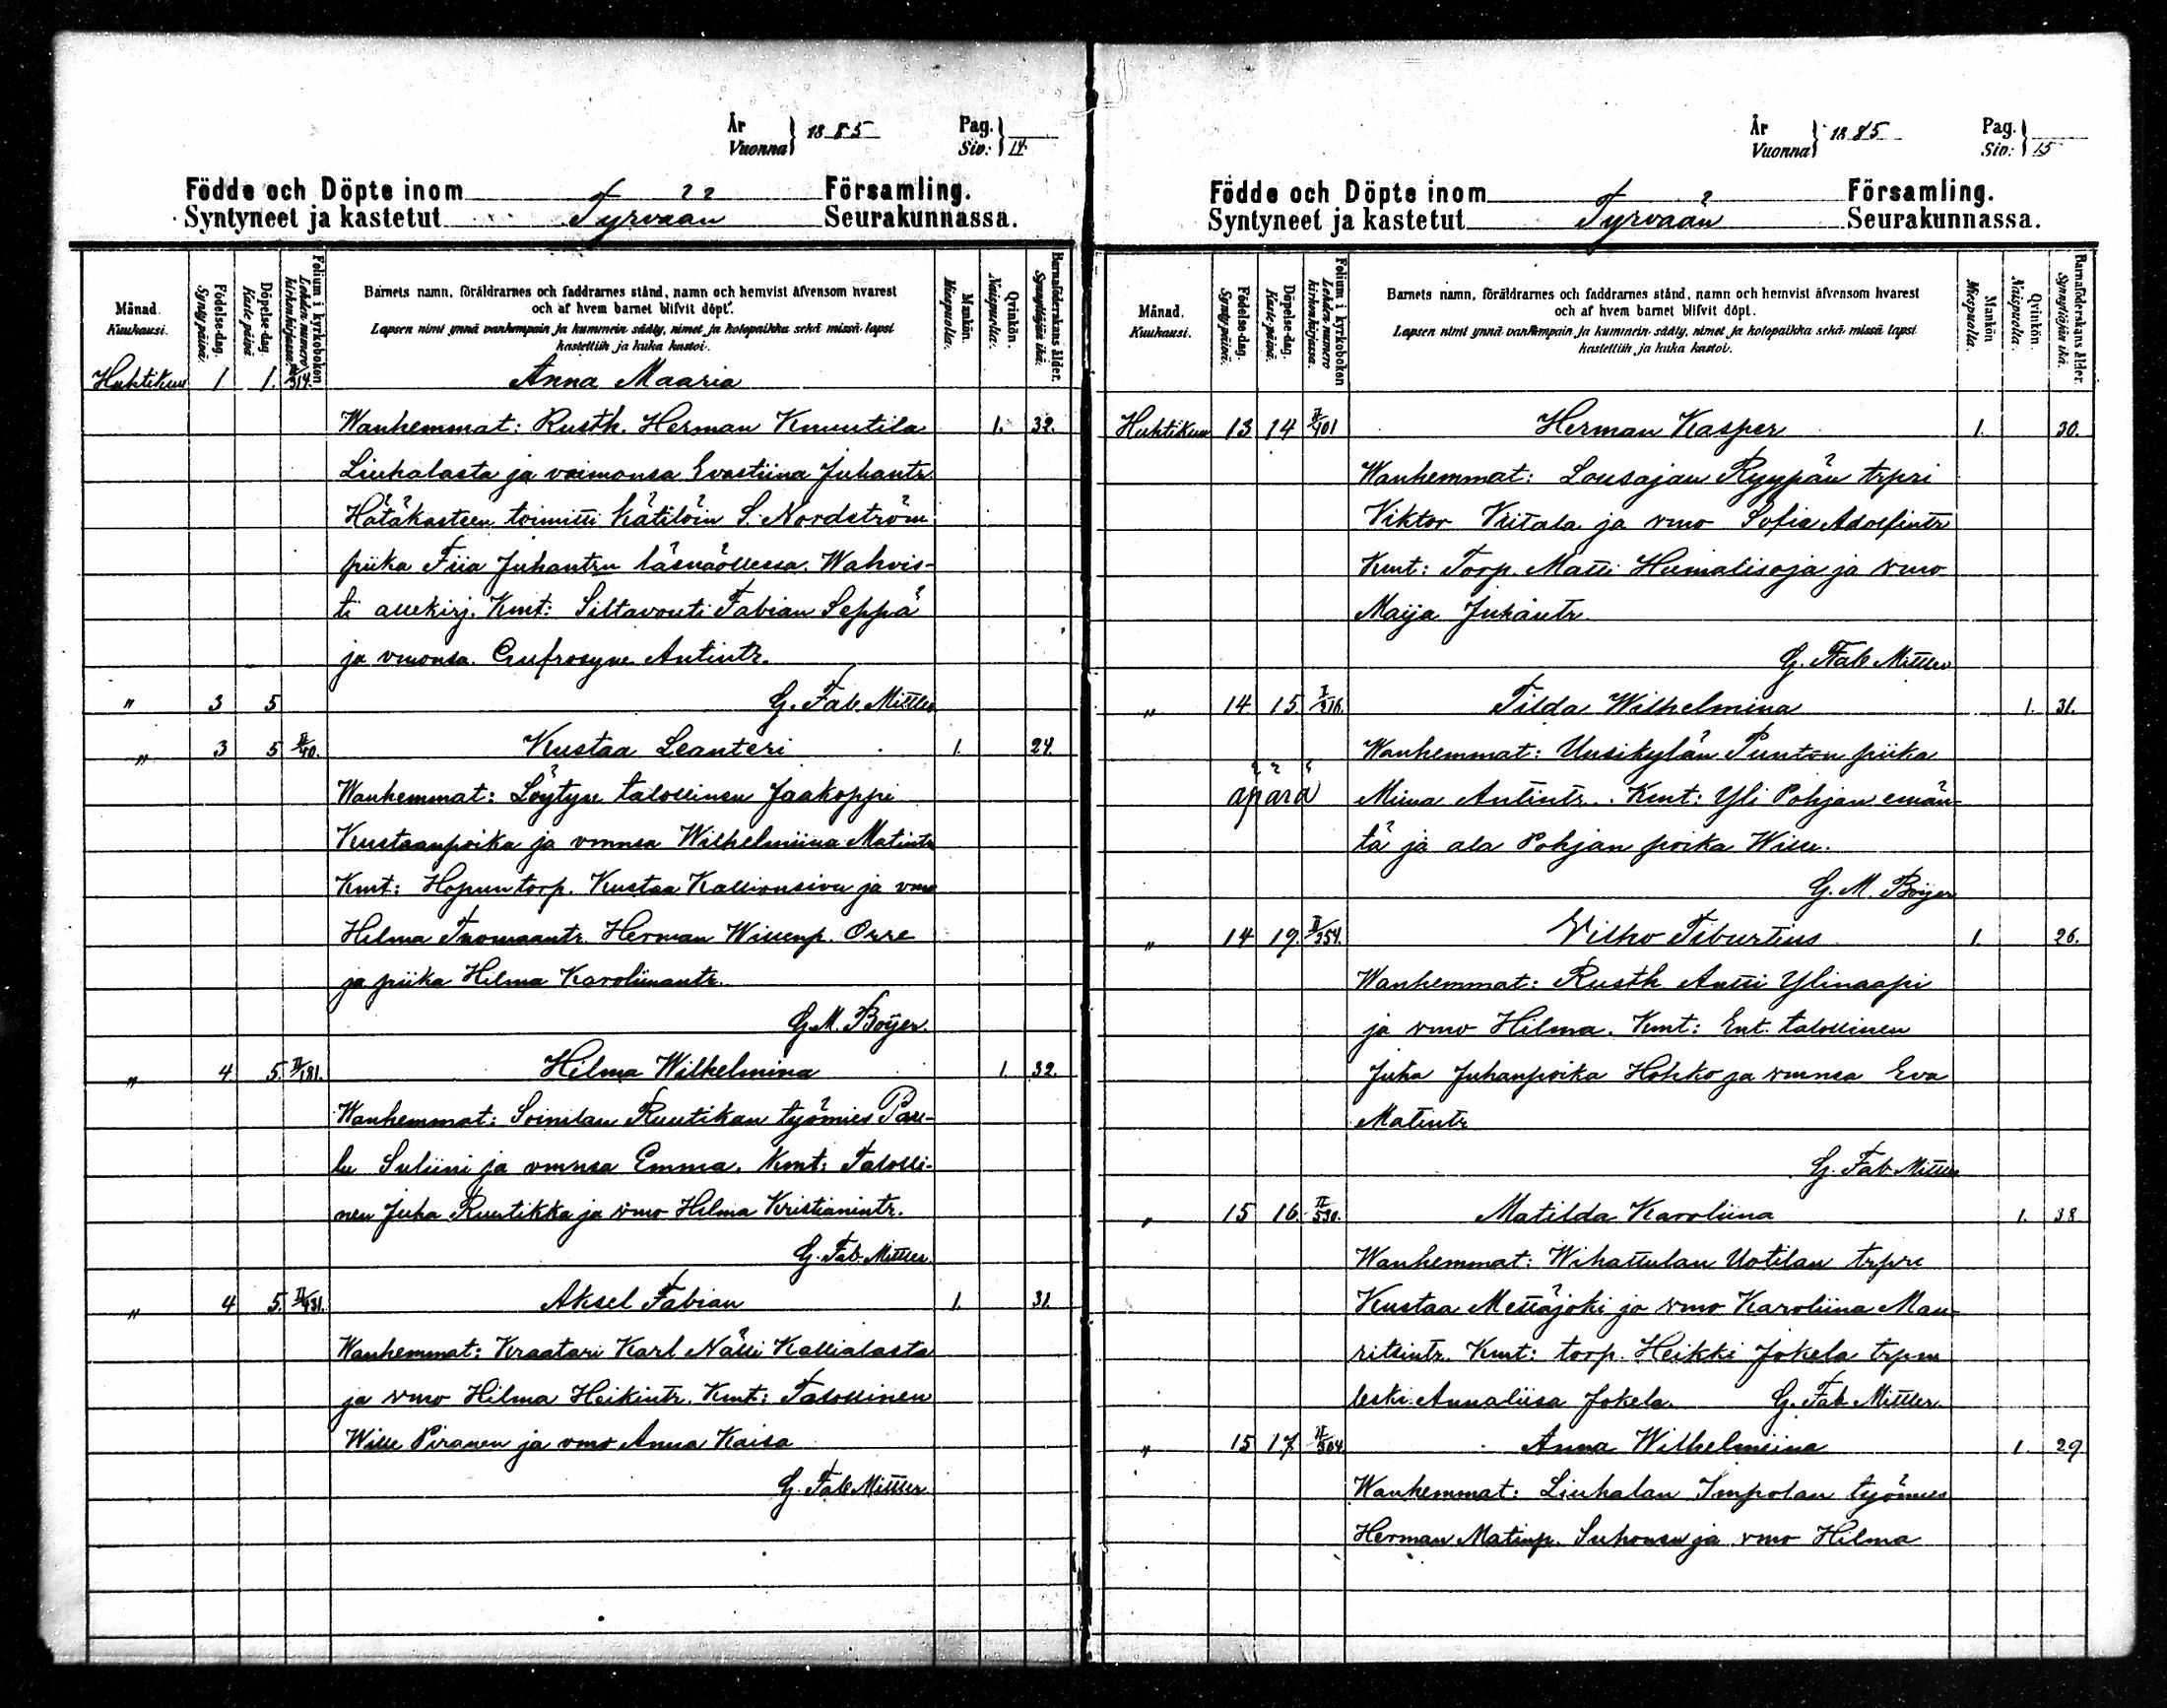 År
Vuonna } 1885
Pag.
Siv: } 14
Födde och Döpte inom Församling.
Syntyneet ja kastetut Tyrvään Seurakunnassa.
Månad.
Kuukausi.
Födelse-dag.
Syntypäivä.
Döpelse-dag.
Kastepäivä.
Folium i kyrkoboken
Lehden numero kirkonkirjassa.
Barnets namn, föräldrarnes och faddrarnes stånd, namn och hemvist äfvensom hvarest
och af hvem barnet blifvit döpt.
Lapsen nimi ynnä vanhempain ja kummein sääty, nimet ja kotopaikka sekä missä lapsi
kastettiih ja kuka kastoi.
Mankön.
Miespuolta.
Qvinkön.
Naispuolta.
Barnaföderskans ålder.
Synnyttäjän ikä.
Huhtikuu 1 1. 314. Anna Maaria
Wanhemmat: Rusth. Herman Knuutila 1. 32.
Liuhalasta ja vaimonsa Evastiina Juhantr.
Hätäkasteen toimitti kätilöin S. Nordström
piika Fiia Juhantr läsnäollessa. Wahvis-
ti allekirj. Kmt: Siltavouti Fabian Seppä
ja vmonsa Eufrosyne Antintr.
" 3 5 G. Fab. Mittler
" 3 5 II/40. Kustaa Leanteri 1. 24.
Wanhemmat: Löytyn talollinen Jaakoppi
Kustaanpoika ja vmnsa Wilhelmiina Matintr
Kmt: Hopun torp. Kustaa Kallionsivu ja vmo
Hilma Tuomaantr. Herman Willenp. Orre
ja piika Hilma Karoliinantr.
G. M. Böijer.
" 4. 5. II/181. Hilma Wilhelmina 1. 32.
Wanhemmat: Soinilan Ruutikan työmies Paa-
lu Suliini ja vmnsa Emma. Kmt: Talolli-
nen Juha Ruutikka ja vmo Hilma Kristianintr.
G. Fab. Mittler.
" 4 5. II/481. Aksel Fabian 1. 31.
Wanhemmat: Kraatari Karl Nälli Kallialasta
ja vmo Hilma Heikintr. Kmt: Talollinen
Wille Piranen ja vmo Anna Kaisa
G. Fab Mittler
År
Vuonna } 1885
Pag.
Siv: } 15
Födde och Döpte inom Församling.
Syntyneet ja kastetut Tyrvään Seurakunnassa.
Månad.
Kuukausi.
Födelse-dag.
Syntypäivä.
Döpelse-dag.
Kastepäivä.
Folium i kyrkoboken
Lehden numero kirkonkirjassa.
Barnets namn, föräldrarnes och faddrarnes stånd, namn och hemvist äfvensom hvarest
och af hvem barnet blifvit döpt.
Lapsen nimi ynnä vanhempain ja kummein sääty, nimet ja kotopaikka sekä missä lapsi
kastettiih ja kuka kastoi.
Mankön
Miespuolta.
Qvinkön.
Naispuolta.
Barnaföderskans ålder.
Synnyttäjän ikä.
Huhtikuu 13 14 II/401 Herman Kasper 1. 30.
Wanhemmat: Lousajan Ryypän trpri
Viktor Kiitala ja vmo Sofia Adolfintr
Kmt: Torp. Matti Humalisoja ja vmo
Maija Juhantr.
G. Fab. Mittler
" 14. 15. I/216. Tilda Wilhelmina 1. 31.
Wanhemmat: Uusikylän Punton piika
äpärä Miina Antintr. Kmt: Yli Pohjan emän-
tä ja ala Pohjan poika Wille.
G. M. Böijer
" 14 19. II/354. Vilho Tiburtius 1. 26.
Wanhemmat: Rusth Antti Ylinaapi
ja vmo Hilma. Kmt: Ent. talollinen
Juha Juhanpoika Hohko ja vmnsa Eva
Matintr
G. Fab Mittler
" 15 16. II/530. Matilda Karoliina 1. 38
Wanhemmat: Wihattulan Uotilan trpri
Kustaa Mettäjoki ja vmo Karoliina Mau-
ritsintr. Kmt: torp. Heikki Jokela trpm
leski Annaliisa Jokela. G. Fab Mittler.
" 15 17 II/304 Anna Wilhelmiina 1. 29
Wanhemmat: Liuhalan Impolan työmies
Herman Matinp. Suhonen ja vmo Hilma